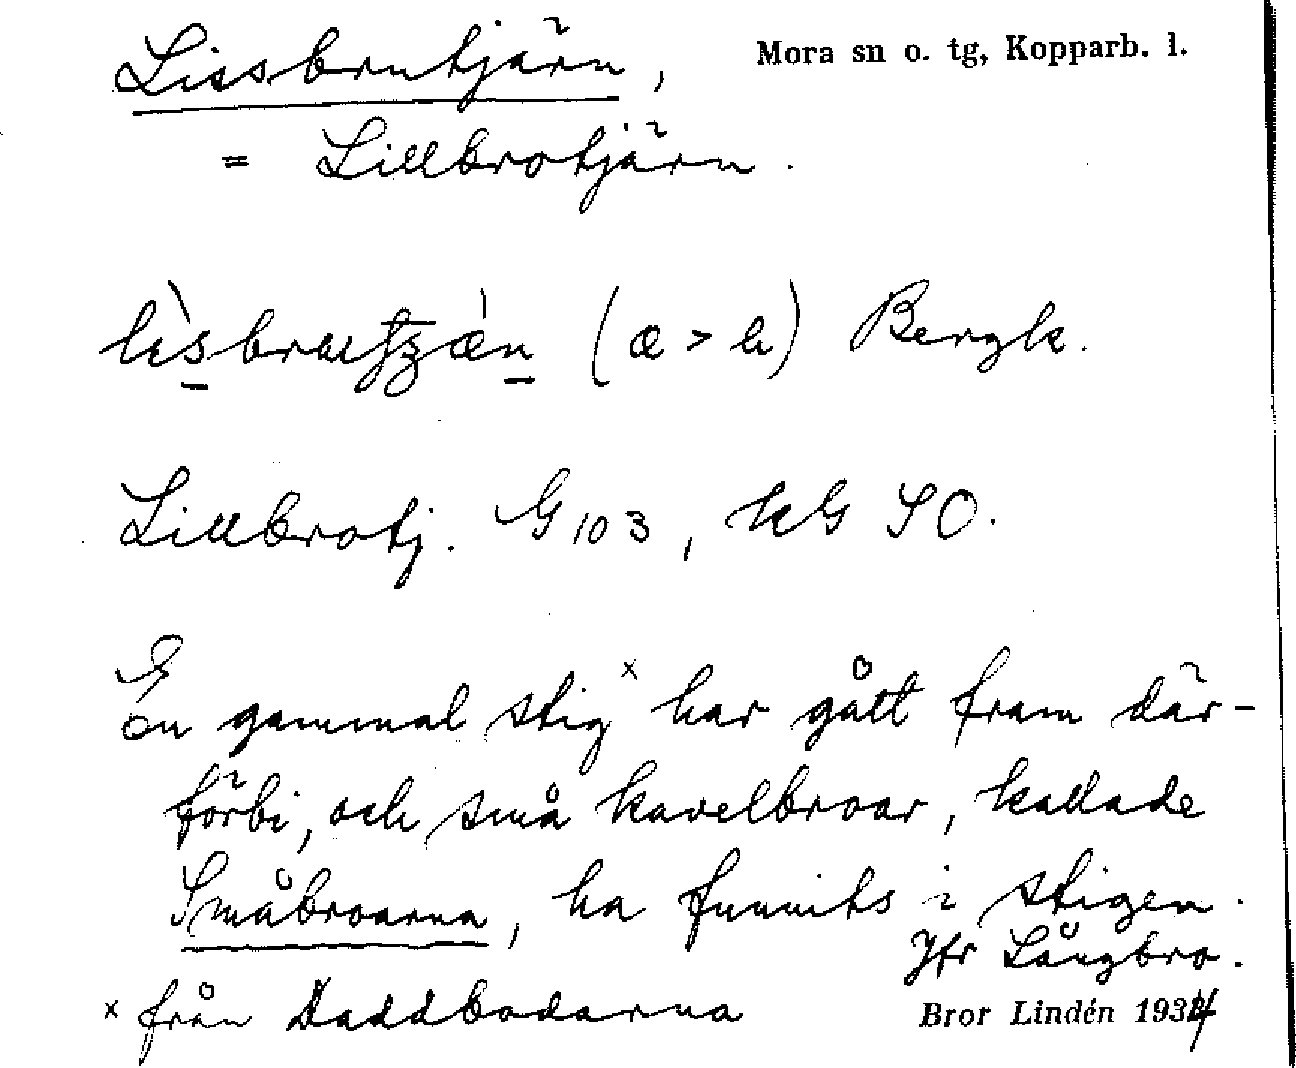 Lissbrutjärn,
Mora sn o. tg, Kopparb. l.
= Lillbrotjärn.
(æ > a) Bergk.
Lillbrotj. G 103, kG SO.
En gammal stig x har gått fram där-
förbi, och små kavelbroar, kallade
Småbroarna, ha funnits i stigen.
Jfr Långbro.
x från Daddbodarna
Bror Lindén 1934